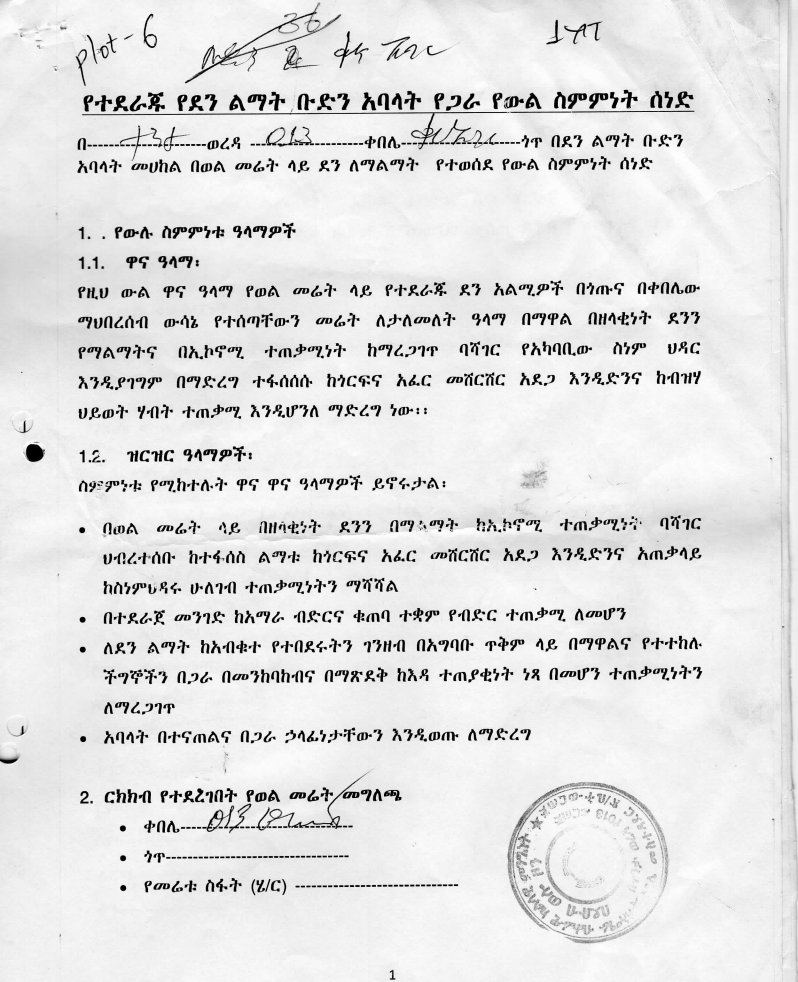 plot-6
36
1YAT
የተደራጁ የደን ልማት ቡድን አባላት የጋራ የውል ስምምነት ሰነድ
በ---------------------ወረዳ --------013----------ቀበሌ---------------------ጎጥ በደን ልማት ቡድን
አባላት መሀከል በወል መሬት ላይ ደን ለማልማት የተወሰደ የውል ስምምነት ሰነድ
1. . የውሉ ስምምነቱ ዓላማዎች
1.1. ዋና ዓላማ፡
የዚህ ውል ዋና ዓላማ የወል መሬት ላይ የተደራጁ ደን አልሚዎች በጎጡና በቀበሌው
ማህበረሰብ ውሳኔ የተሰጣቸውን መሬት ለታለመለት ዓላማ በማዋል በዘላቂነት ደንን
የማልማትና በኢኮኖሚ ተጠቃሚነት ከማረጋገጥ ባሻገር የአካባቢው ስነም ህዳር
እንዲያገግም በማድረግ ተፋሰሰሱ ከጎርፍና አፈር መሸርሸር አደጋ እንዲድንና ከብዝሃ
ህይወት ሃብት ተጠቃሚ እንዲሆንለ ማድረግ ነው፡፡
1.2. ዝርዝር ዓላማዎች፡
ስምምነቱ የሚከተሉት ዋና ዋና ዓላማዎች ይኖሩታል፡
• በወል መሬት ላይ በዘላቂነት ደንን በማልማት ከኢኮኖሚ ተጠቃሚነት ባሻገር
ህብረተሰቡ ከተፋሰስ ልማቱ ከጎርፍና አፈር መሸርሸር አደጋ እንዲድንና አጠቃላይ
ከስነምህዳሩ ሁለገብ ተጠቃሚነትን ማሻሻል
• በተደራጀ መንገድ ከአማራ ብድርና ቁጠባ ተቋም የብድር ተጠቃሚ ለመሆን
• ለደን ልማት ከአብቁተ የተበደሩትን ገንዘብ በአግባቡ ጥቅም ላይ በማዋልና የተተከሉ
ችግኞችን በጋራ በመንከባከብና በማጽደቅ ከእዳ ተጠያቂነት ነጻ በመሆን ተጠቃሚነትን
ለማረጋገጥ
• አባላት በተናጠልና በጋራ ኃላፊነታቸውን እንዲወጡ ለማድረግ
2. ርክክብ የተደረገበት የወል መሬት መግለጫ
• ቀበሌ----013--------------------
• ጎጥ--------------------------------
• የመሬቱ ስፋት (ሄ/ር) ----------------------------
1